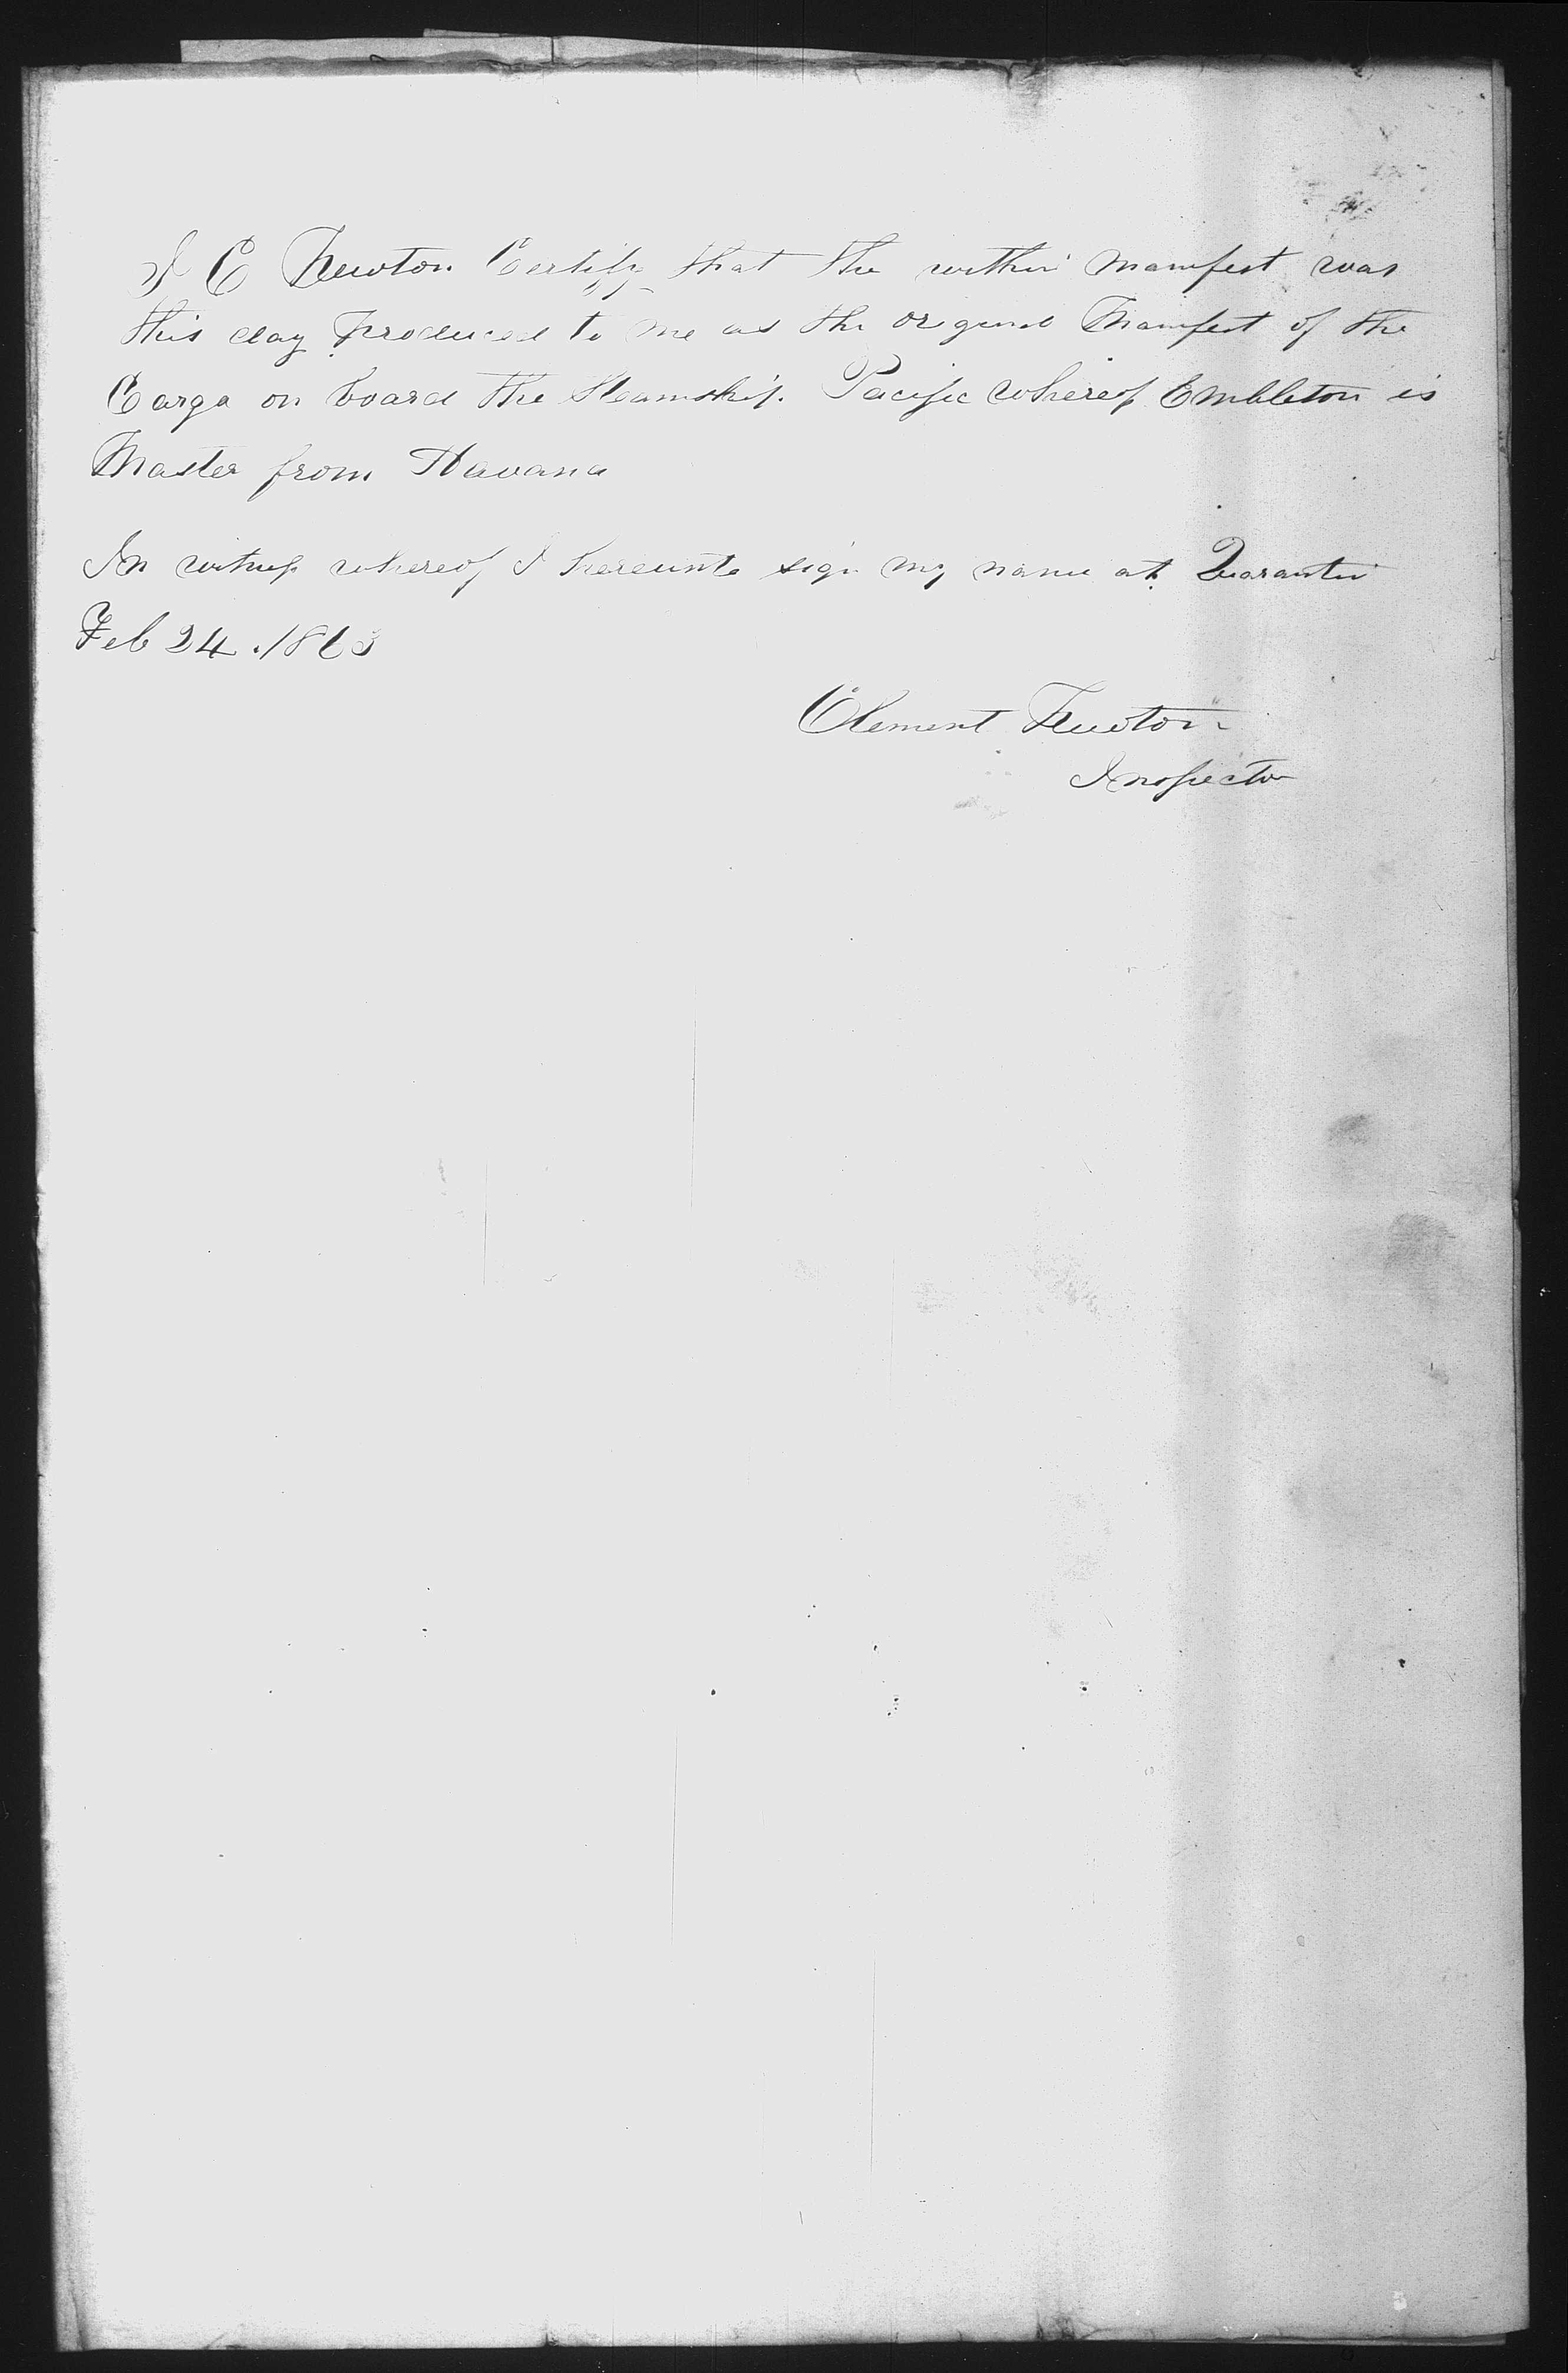 I C Newton Certify that the within manifest was
this day produced to me as the original Manifest of the
Cargo on board the Steamship Pacific whereof Embleton is
Master from Havana
In witness whereof I hereunto sign my name at Quarantin
Feb 24. 1863
Clement Newton
Inspector